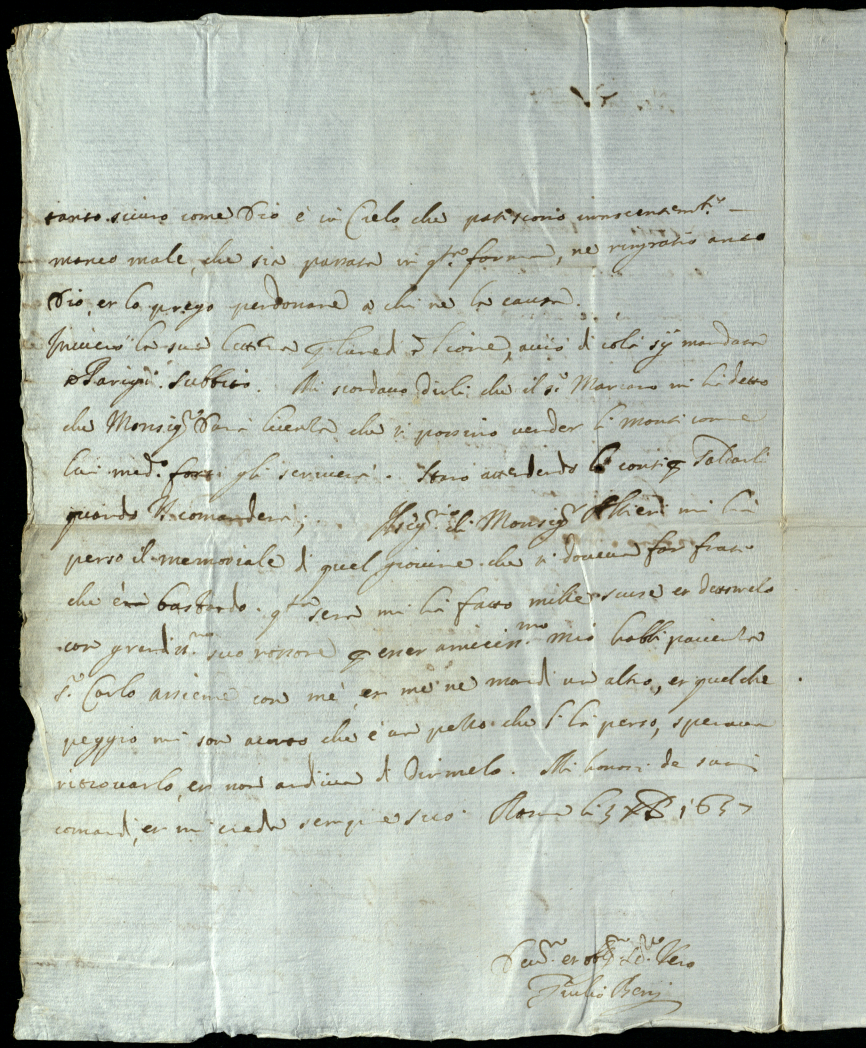 tanto sicuro come Dio è in Cielo che patiscono innocentemte. —
manco male, che sia passata in qta. forma, ne ringratio anco
Dio, et lo prego perdonare a chi ne la causa.
Invierò la sua lettera Lione, acciò di colà si mandara
a Parigi subbito. Mi scordavo dirli che il Sr. Marcaro mi ha detto
che Monsigr. Sarà che si possino vender li monti come
lui medo. forsi gli scriverà. Starò attendendo li conti saldarli
quando V. comanderà;. Monsigr. Altieri mi ha
perso il memoriale di quel giovine che si doveva far frate
che era bastardo. qta. sera mi ha fatto mille scuse et dettomelo
con grandissmo. suo rossore esser amicissmo. mio habbi patienza
Sr. Carlo assieme con me, et me ne mandi un altro, et quel che
peggio mi son acorto che è un pezzo che l'ha perso, sperava
ritrovarlo, et non ardiva di dirmelo. Mi honori de suoi
comandi, et mi creda sempre suo. Roma li 5 XB 1657
et obbmo. Vero
Giulio